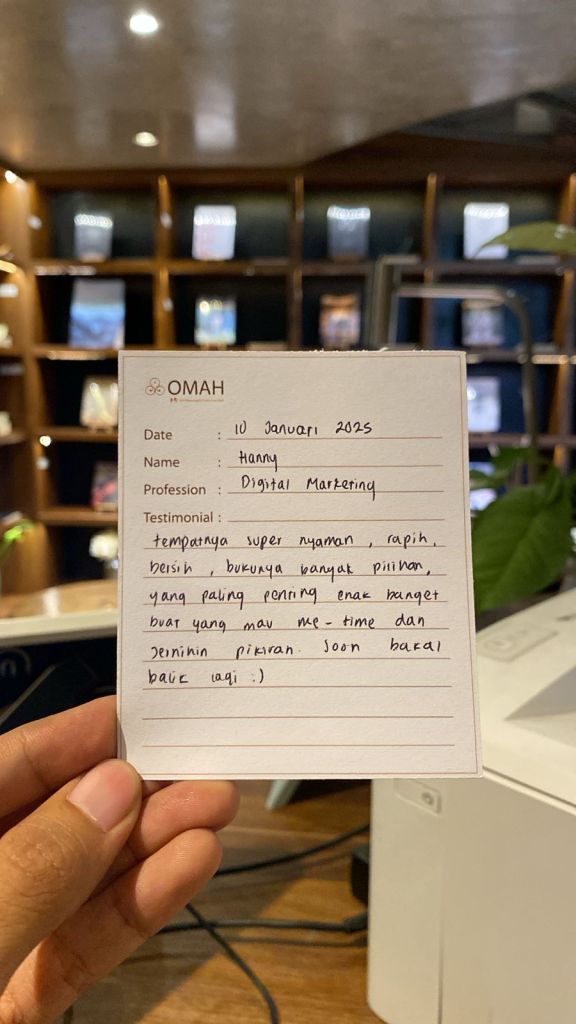 OMAH
Date : 10 Januari 2025
Name : Hanny
Profession : Digital Marketing
Testimonial :
tempatnya super nyaman, rapih,
bersih, bukunya banyak pilihan,
yang paling penting enak banget
buat yang mau me-time dan
jernihin pikiran. Soon bakal
balik lagi :)